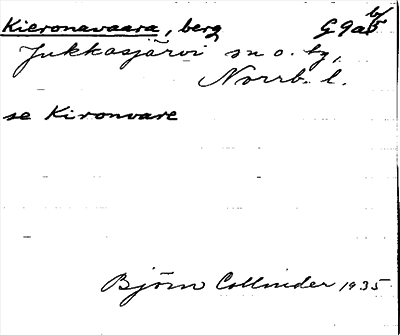 Kieronavaara, berg G9a b/5
Jukkasjärvi sn o. tg,
Norrb. l.
se Kironvare
Björn Collinder 1935